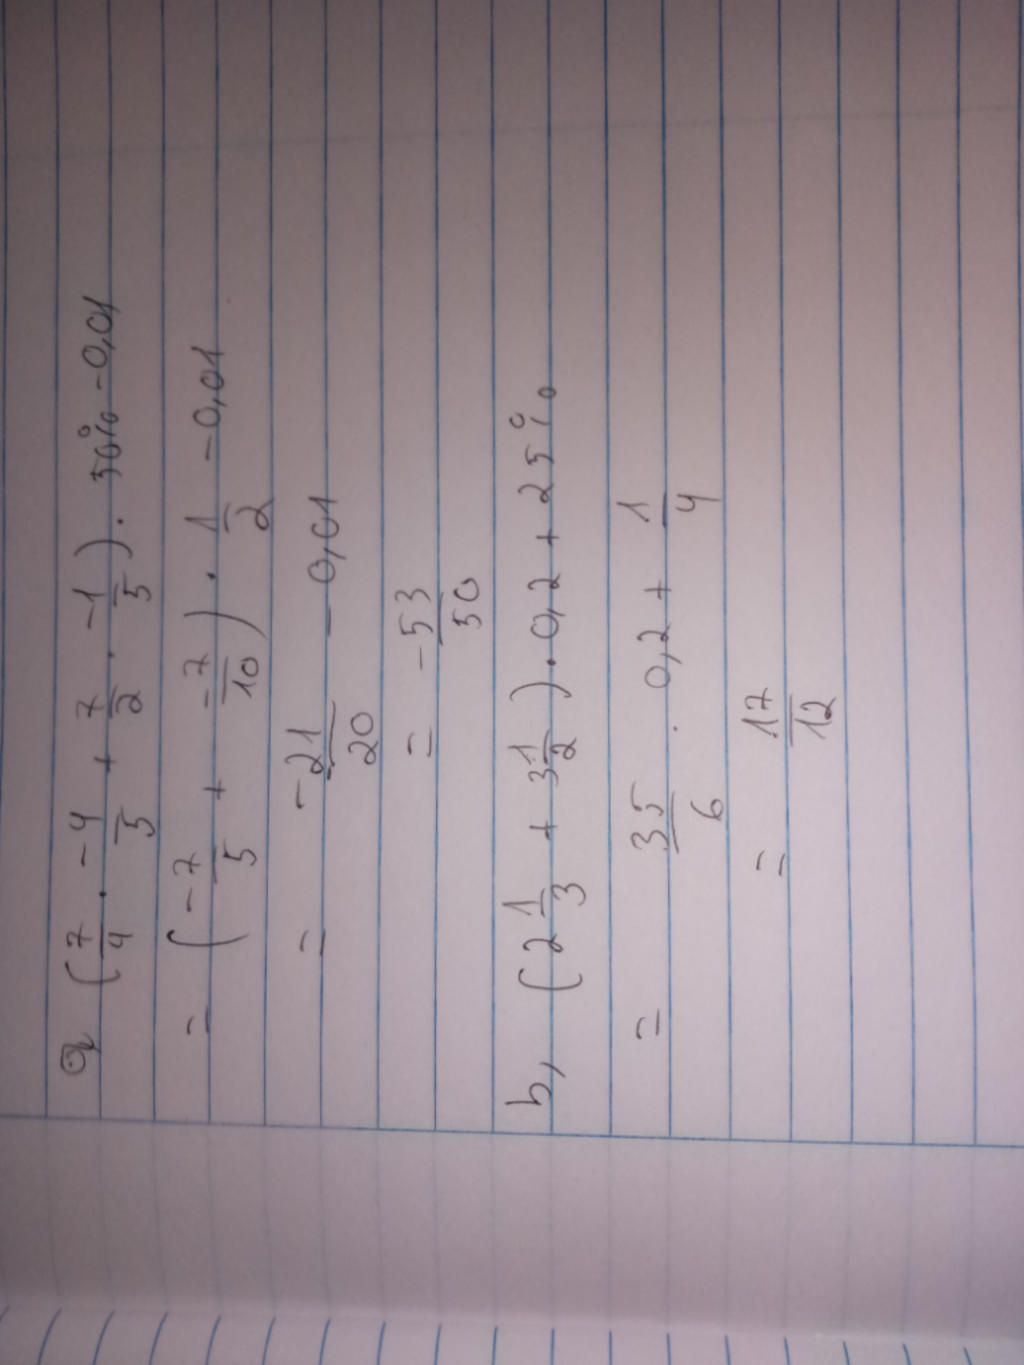 a, (7/4 . -4/5 + 7/2 . -1/5) . 50% - 0,01
= (-7/5 + -7/10) . 1/2 - 0,01
= -21/20 - 0,01
= -53/50
b, (2 1/3 + 3 1/2) . 0,2 + 25%
= 35/6 . 0,2 + 1/4
= 17/12